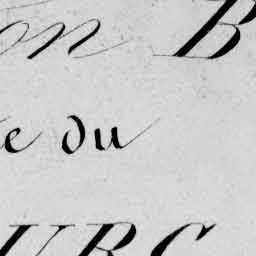 on B
e du
URC